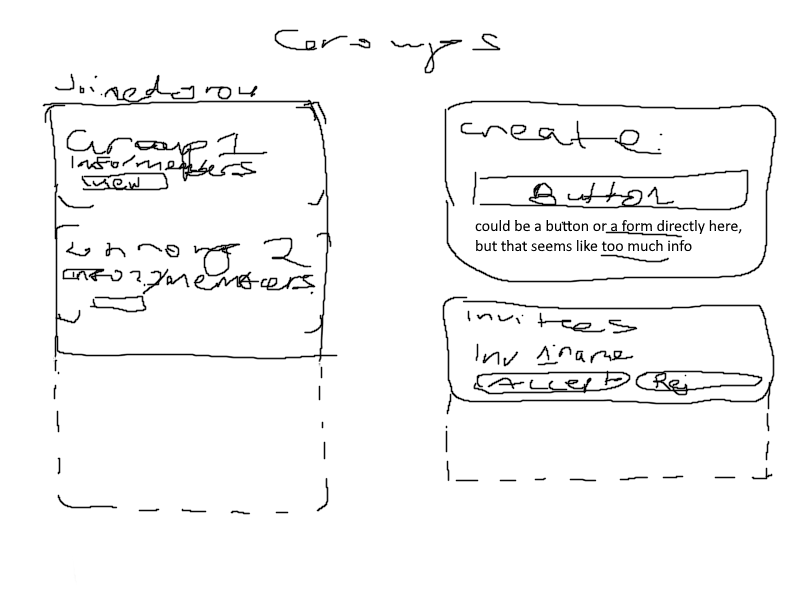 Groups
Joined grou
Group 1
Info/members
view
2
info?/members
Create:
Button
could be a button or a form directly here,
but that seems like too much info
Invitees
Inv 1 name
Accept Rej